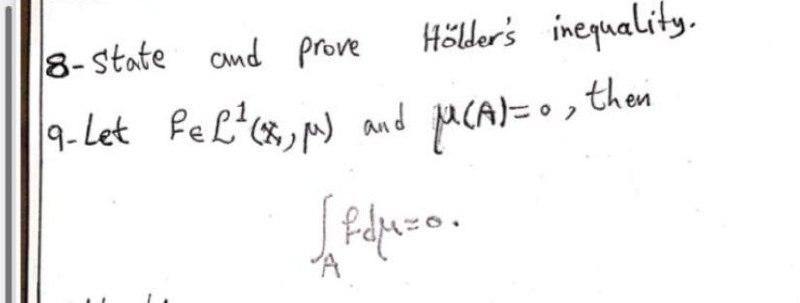 8- State and prove Hölder's inequality.
9- Let f ∈ L¹(X, μ) and μ(A)=0, then
∫_A f dμ=0.